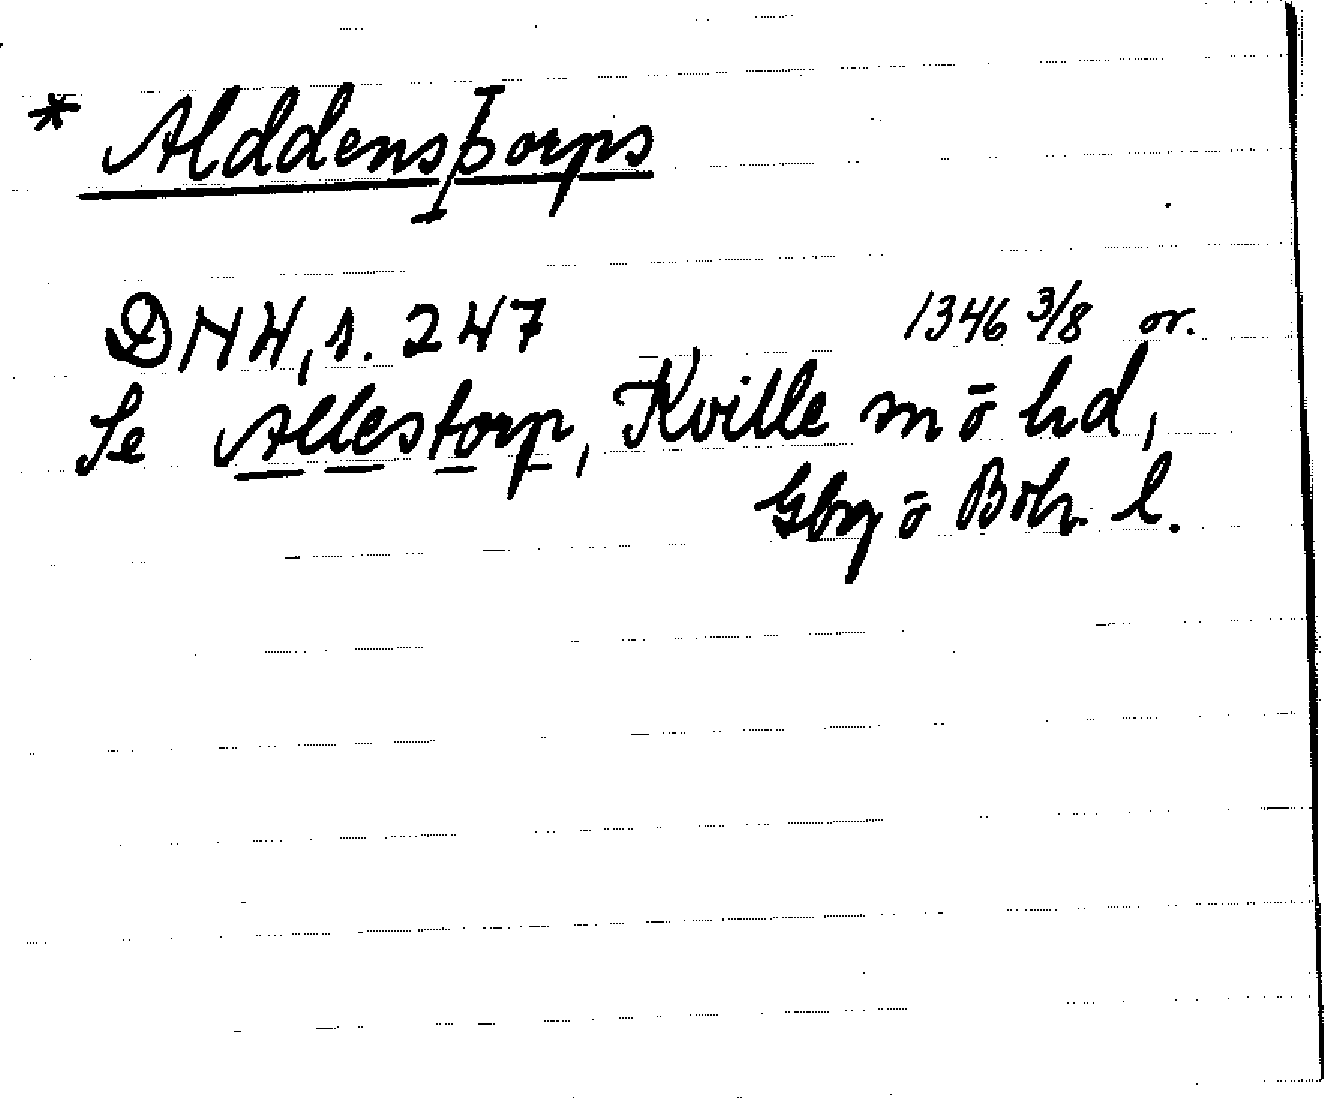 * Alddensþorps
DN 4, s. 247 1346 3/8 or.
Se Allestorp, Kville sn ō hd,
Gbg ō Boh. l.